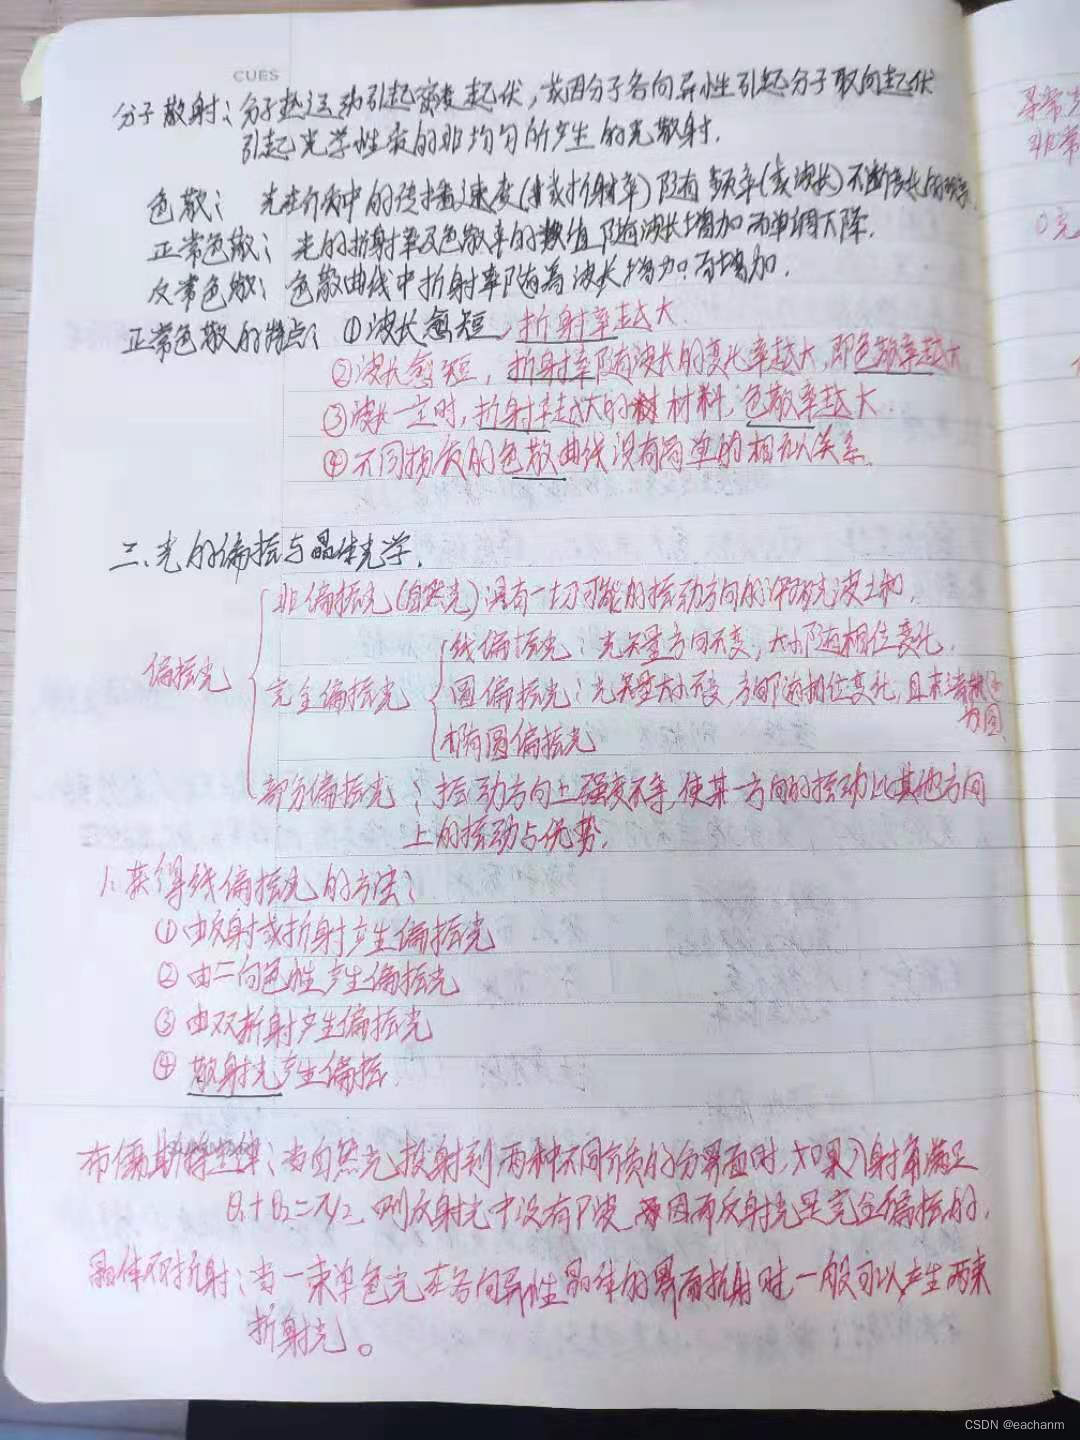 CUES
分子散射：分子热运动引起密度起伏，或因分子各向异性引起分子取向起伏
引起光学性质的非均匀所产生的光散射．
色散：光在介质中的传播速度（或折射率）随频率（或波长）不断变化的现象．
正常色散：光的折射率及色散率的数值随波长增加而单调下降．
反常色散：色散曲线中折射率随着波长增加而增加．
正常色散的特点：①波长愈短，折射率越大
②波长愈短，折射率随波长的变化率越大，即色散率越大
③波长一定时，折射率越大的材料，色散率越大．
④不同物质的色散曲线没有简单的相似关系．
二、光的偏振与晶体光学．
非偏振光（自然光）具有一切可能的振动方向的许多光波之和．
线偏振光：光矢量方向不变，大小随相位变化．
偏振光
完全偏振光
圆偏振光：光矢量大小不变，方向随相位变化，且末端轨迹
为圆．
椭圆偏振光
部分偏振光：振动方向上强度不等，使某一方向的振动比其他方向
上的振动占优势．
1.获得线偏振光的方法：
①由反射或折射产生偏振光
②由二向色性产生偏振光
③由双折射产生偏振光
④散射光产生偏振．
布儒斯特定律：当自然光投射到两种不同介质的分界面时，如果入射角满足
θ₁+θ₂=π/2，则反射光中没有P波，因而反射光是完全偏振的．
晶体双折射：当一束单色光在各向异性晶体的界面折射时，一般可以产生两束
折射光。
寻常光
非常
0光
CSDN @eachanm